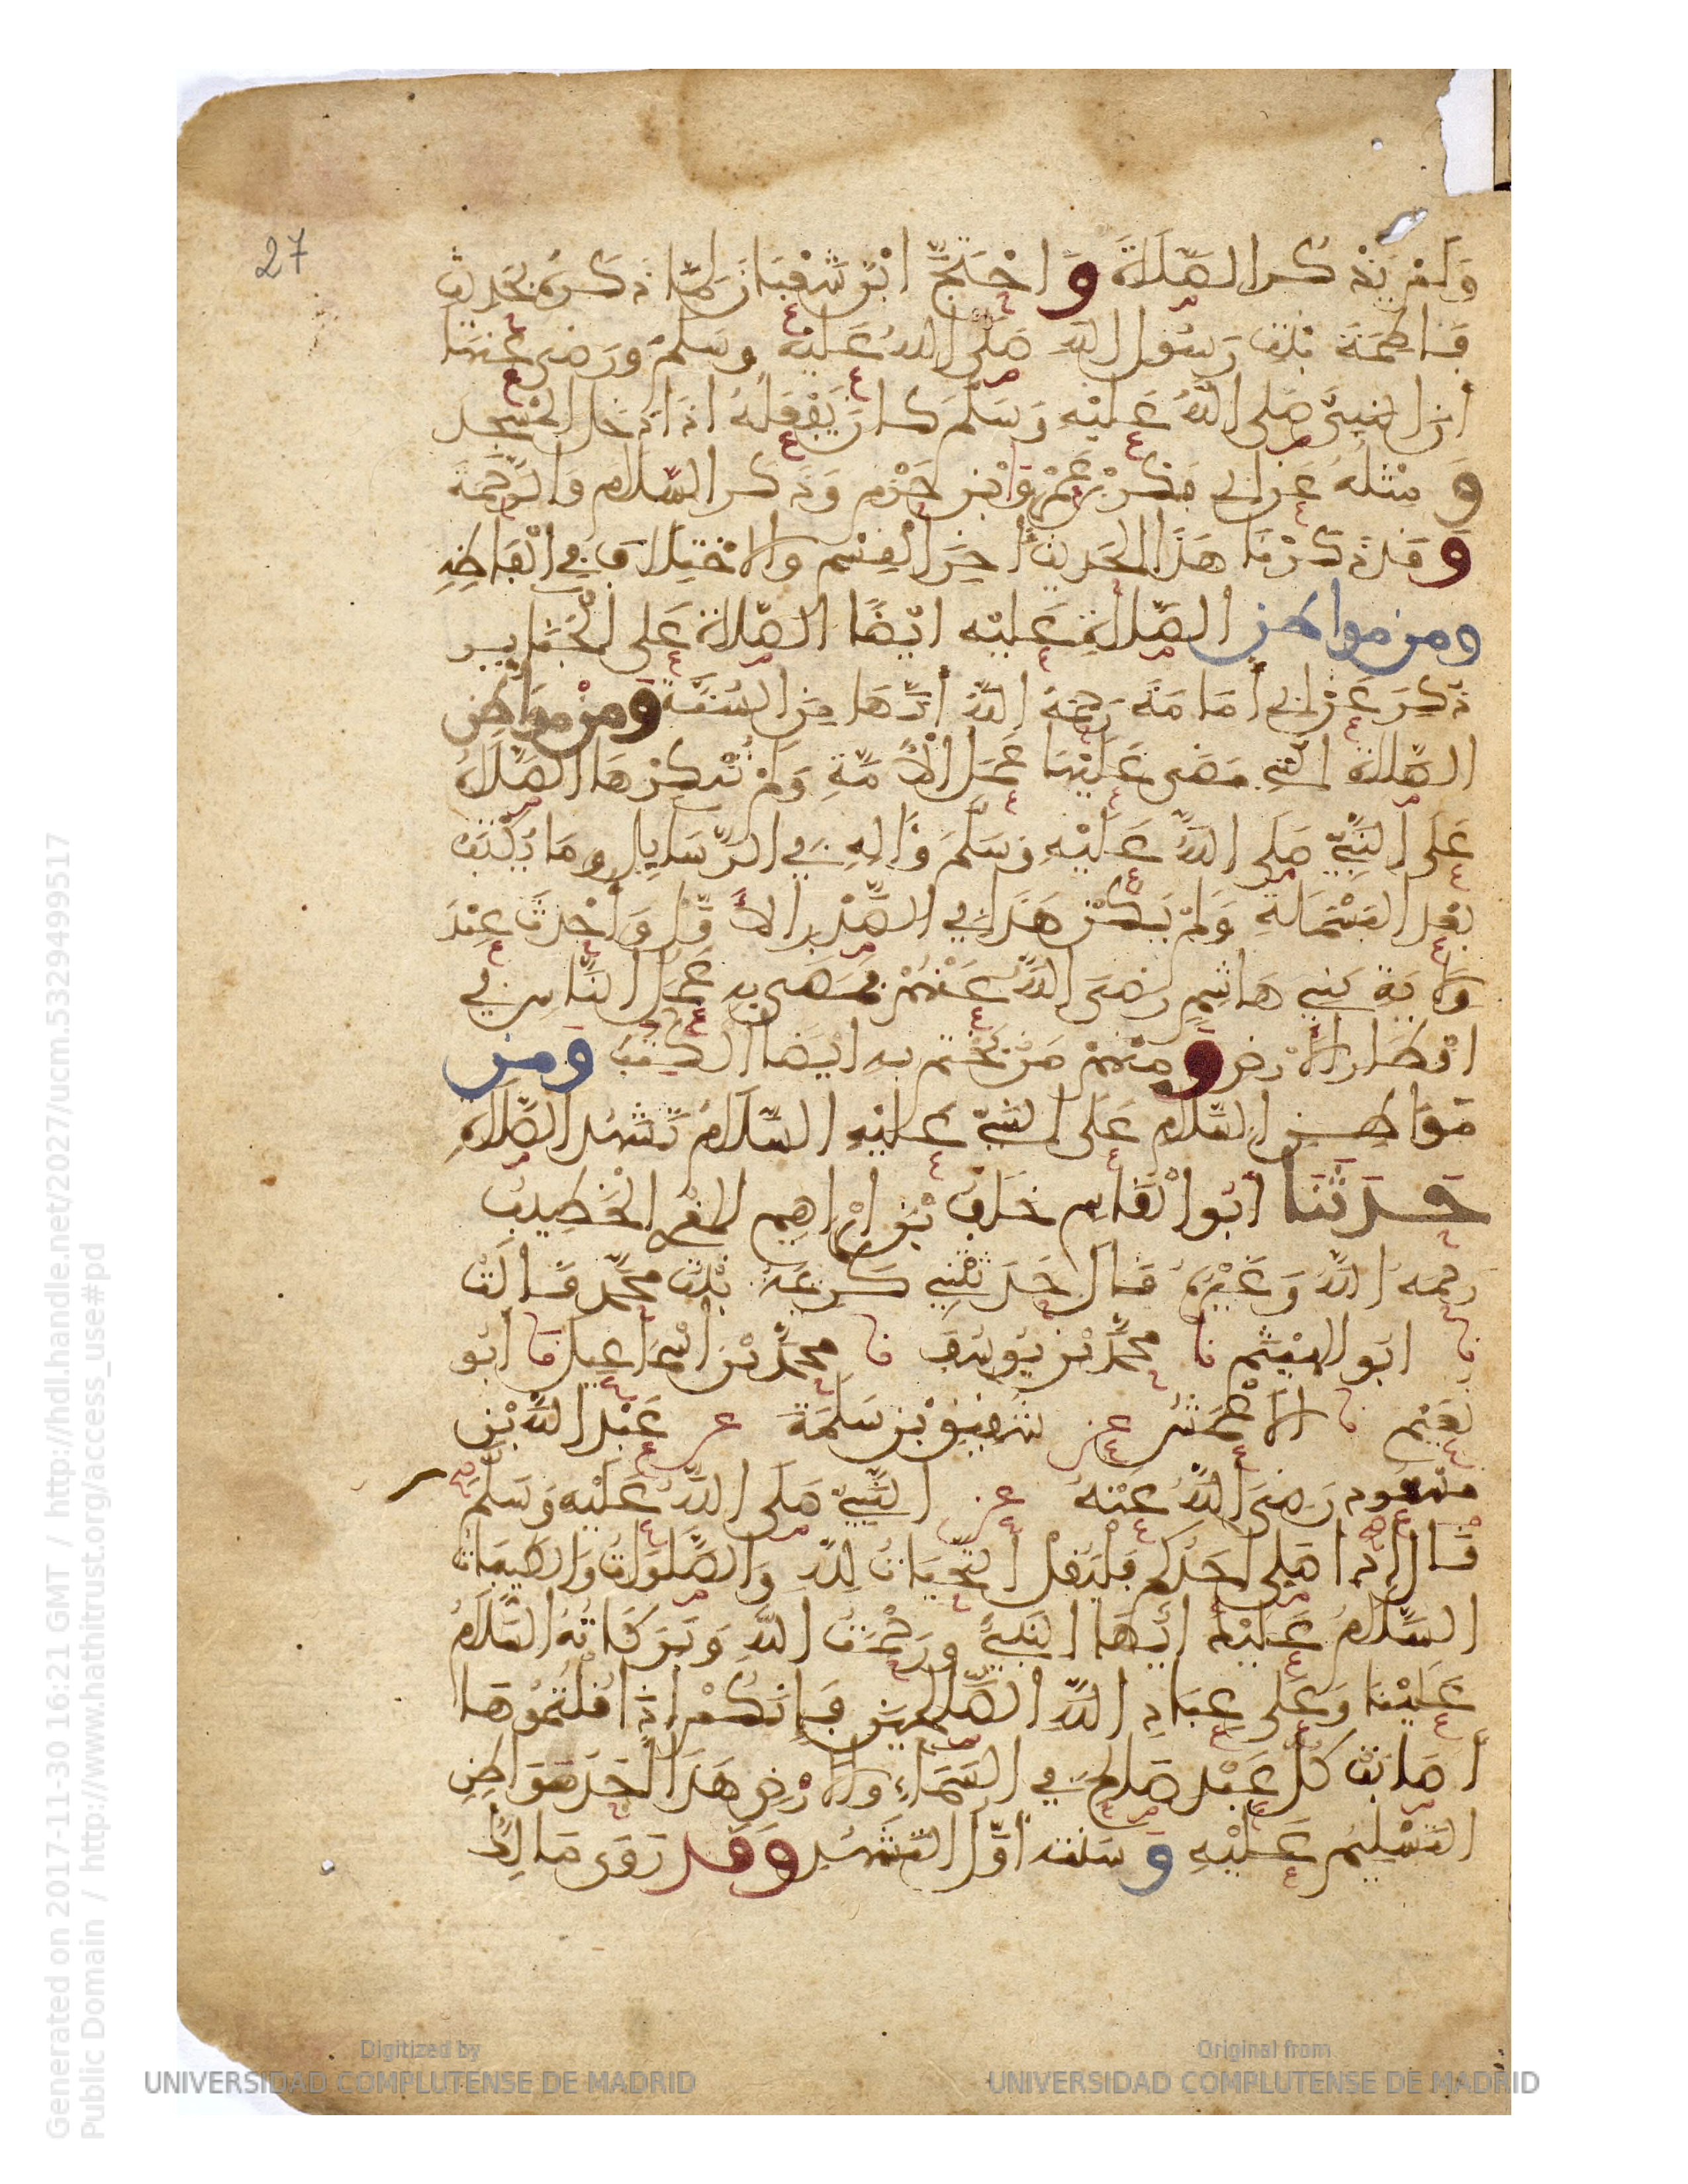 27
وَلَمْ يَذْكُرِ الصَّلَاةَ وَاحْتَجَّ ابْنُ شَعْبَانَ لِمَا ذَكَرَهُ بِحَدِيثِ
فَاطِمَةَ بِنْتِ رَسُولِ اللَّهِ صَلَّى اللَّهُ عَلَيْهِ وَسَلَّمَ وَرَضِيَ عَنْهَا
أَنَّ النَّبِيَّ صَلَّى اللَّهُ عَلَيْهِ وَسَلَّمَ كَانَ يَفْعَلُهُ اذَا دَخَلَ الْمَسْجِدَ
وَمِثْلُهُ عَنْ أَبِي بَكْرِ بْنِ عَمْرِو بْنِ حَزْمٍ وَذَكَرَ السَّلَامَ وَالرَّحْمَةَ
وَقَدْ ذَكَرْنَا هَذَا الْحَدِيثَ أَخِرَ الْقِسْمِ وَالِاخْتِلَافَ فِي أَلْفَاظِهِ
وَمِنْ مَوَاطِنِ الصَّلَاةِ عَلَيْهِ ايْضًا الصَّلَاةُ عَلَى الْجَنَايِزِ
ذُكِرَ عَنْ أَبِي أُمَامَةَ رَحِمَهُ اللَّهُ أَنَّهَا مِنَ السُّنَّةِ وَمِنْ مَوَاطِنِ
الصَّلَاةِ الَّتِي مَضَى عَلَيْهَا عَمَلُ الْأُمَّةِ وَلَمْ تُنْكِرْهَا الصَّلَاةُ
عَلَى النَّبِيِّ صَلَّى اللَّهُ عَلَيْهِ وَسَلَّمَ وَالِهِ فِي الرَّسَايِلِ وَمَا يُكْتَبُ
بَعْدَ الْبَسْمَلَةِ وَلَمْ يَكُنْ هَذَا فِي الصَّدْرِ الْأَوَّلِ وَأُحْدِثَ عِنْدَ
وِلَايَةِ بَنِي هَاشِمٍ رَضِيَ اللَّهُ عَنْهُمْ فَمَضَى بِهِ عَمَلُ النَّاسِ فِي
اقْطَارِ الْأَرْضِ وَمِنْهُمْ مَنْ يَخْتِمُ بِهِ ايْضًا الْكُتُبَ وَمِنْ
مَوَاطِنِ السَّلَامِ عَلَى النَّبِيِّ عَلَيْهِ السَّلَامُ تَشَهُّدُ الصَّلَاةِ
حَدَّثَنَا أَبُو الْقَاسِمِ خَلَفُ بْنُ ابْرَاهِيمَ الْمُقْرِي الْخَطِيبُ
رَحِمَهُ اللَّهُ وَغَيْرُهُ قَالَ حَدَّثَتْنِي كَرِيمَةُ بِنْتُ مُحَمَّدٍ قَالَتْ
نا ابُو الْهَيْثَمِ نا مُحَمَّدُ بْنُ يُوسُفَ نا مُحَمَّدُ بْنُ اسْمَاعِيلَ نا أَبُو
نُعَيْمٍ نا الْأَعْمَشُ عَنْ شَقِيقِ بْنِ سَلَمَةَ عَنْ عَبْدِ اللَّهِ بْنِ
مَسْعُودٍ رَضِيَ اللَّهُ عَنْهُ عَنِ النَّبِيِّ صَلَّى اللَّهُ عَلَيْهِ وَسَلَّمَ
قَالَ إِذَا صَلَّى أَحَدُكُمْ فَلْيَقُلْ التَّحِيَّاتُ لِلَّهِ وَالصَّلَوَاتُ وَالطَّيِّبَاتُ
السَّلَامُ عَلَيْكَ أَيُّهَا النَّبِيُّ وَرَحْمَتُ اللَّهِ وَبَرَكَاتُهُ السَّلَامُ
عَلَيْنَا وَعَلَى عِبَادِ اللَّهِ الصَّالِحِينَ فَإِنَّكُمْ إِذَا قُلْتُمُوهَا
أَصَابَتْ كُلَّ عَبْدٍ صَالِحٍ فِي السَّمَاءِ وَالْأَرْضِ هَذَا أَحَدُ مَوَاطِنِ
التَّسْلِيمِ عَلَيْهِ وَسُنَّتُهُ أَوَّلَ التَّشَهُّدِ وَقَدْ رَوَى مَالِكٌ
Generated on 2017-11-30 16:21 GMT / http://hdl.handle.net/2027/ucm.5329499517
Public Domain / http://www.hathitrust.org/access_use#pd
Digitized by
UNIVERSIDAD COMPLUTENSE DE MADRID
Original from
UNIVERSIDAD COMPLUTENSE DE MADRID